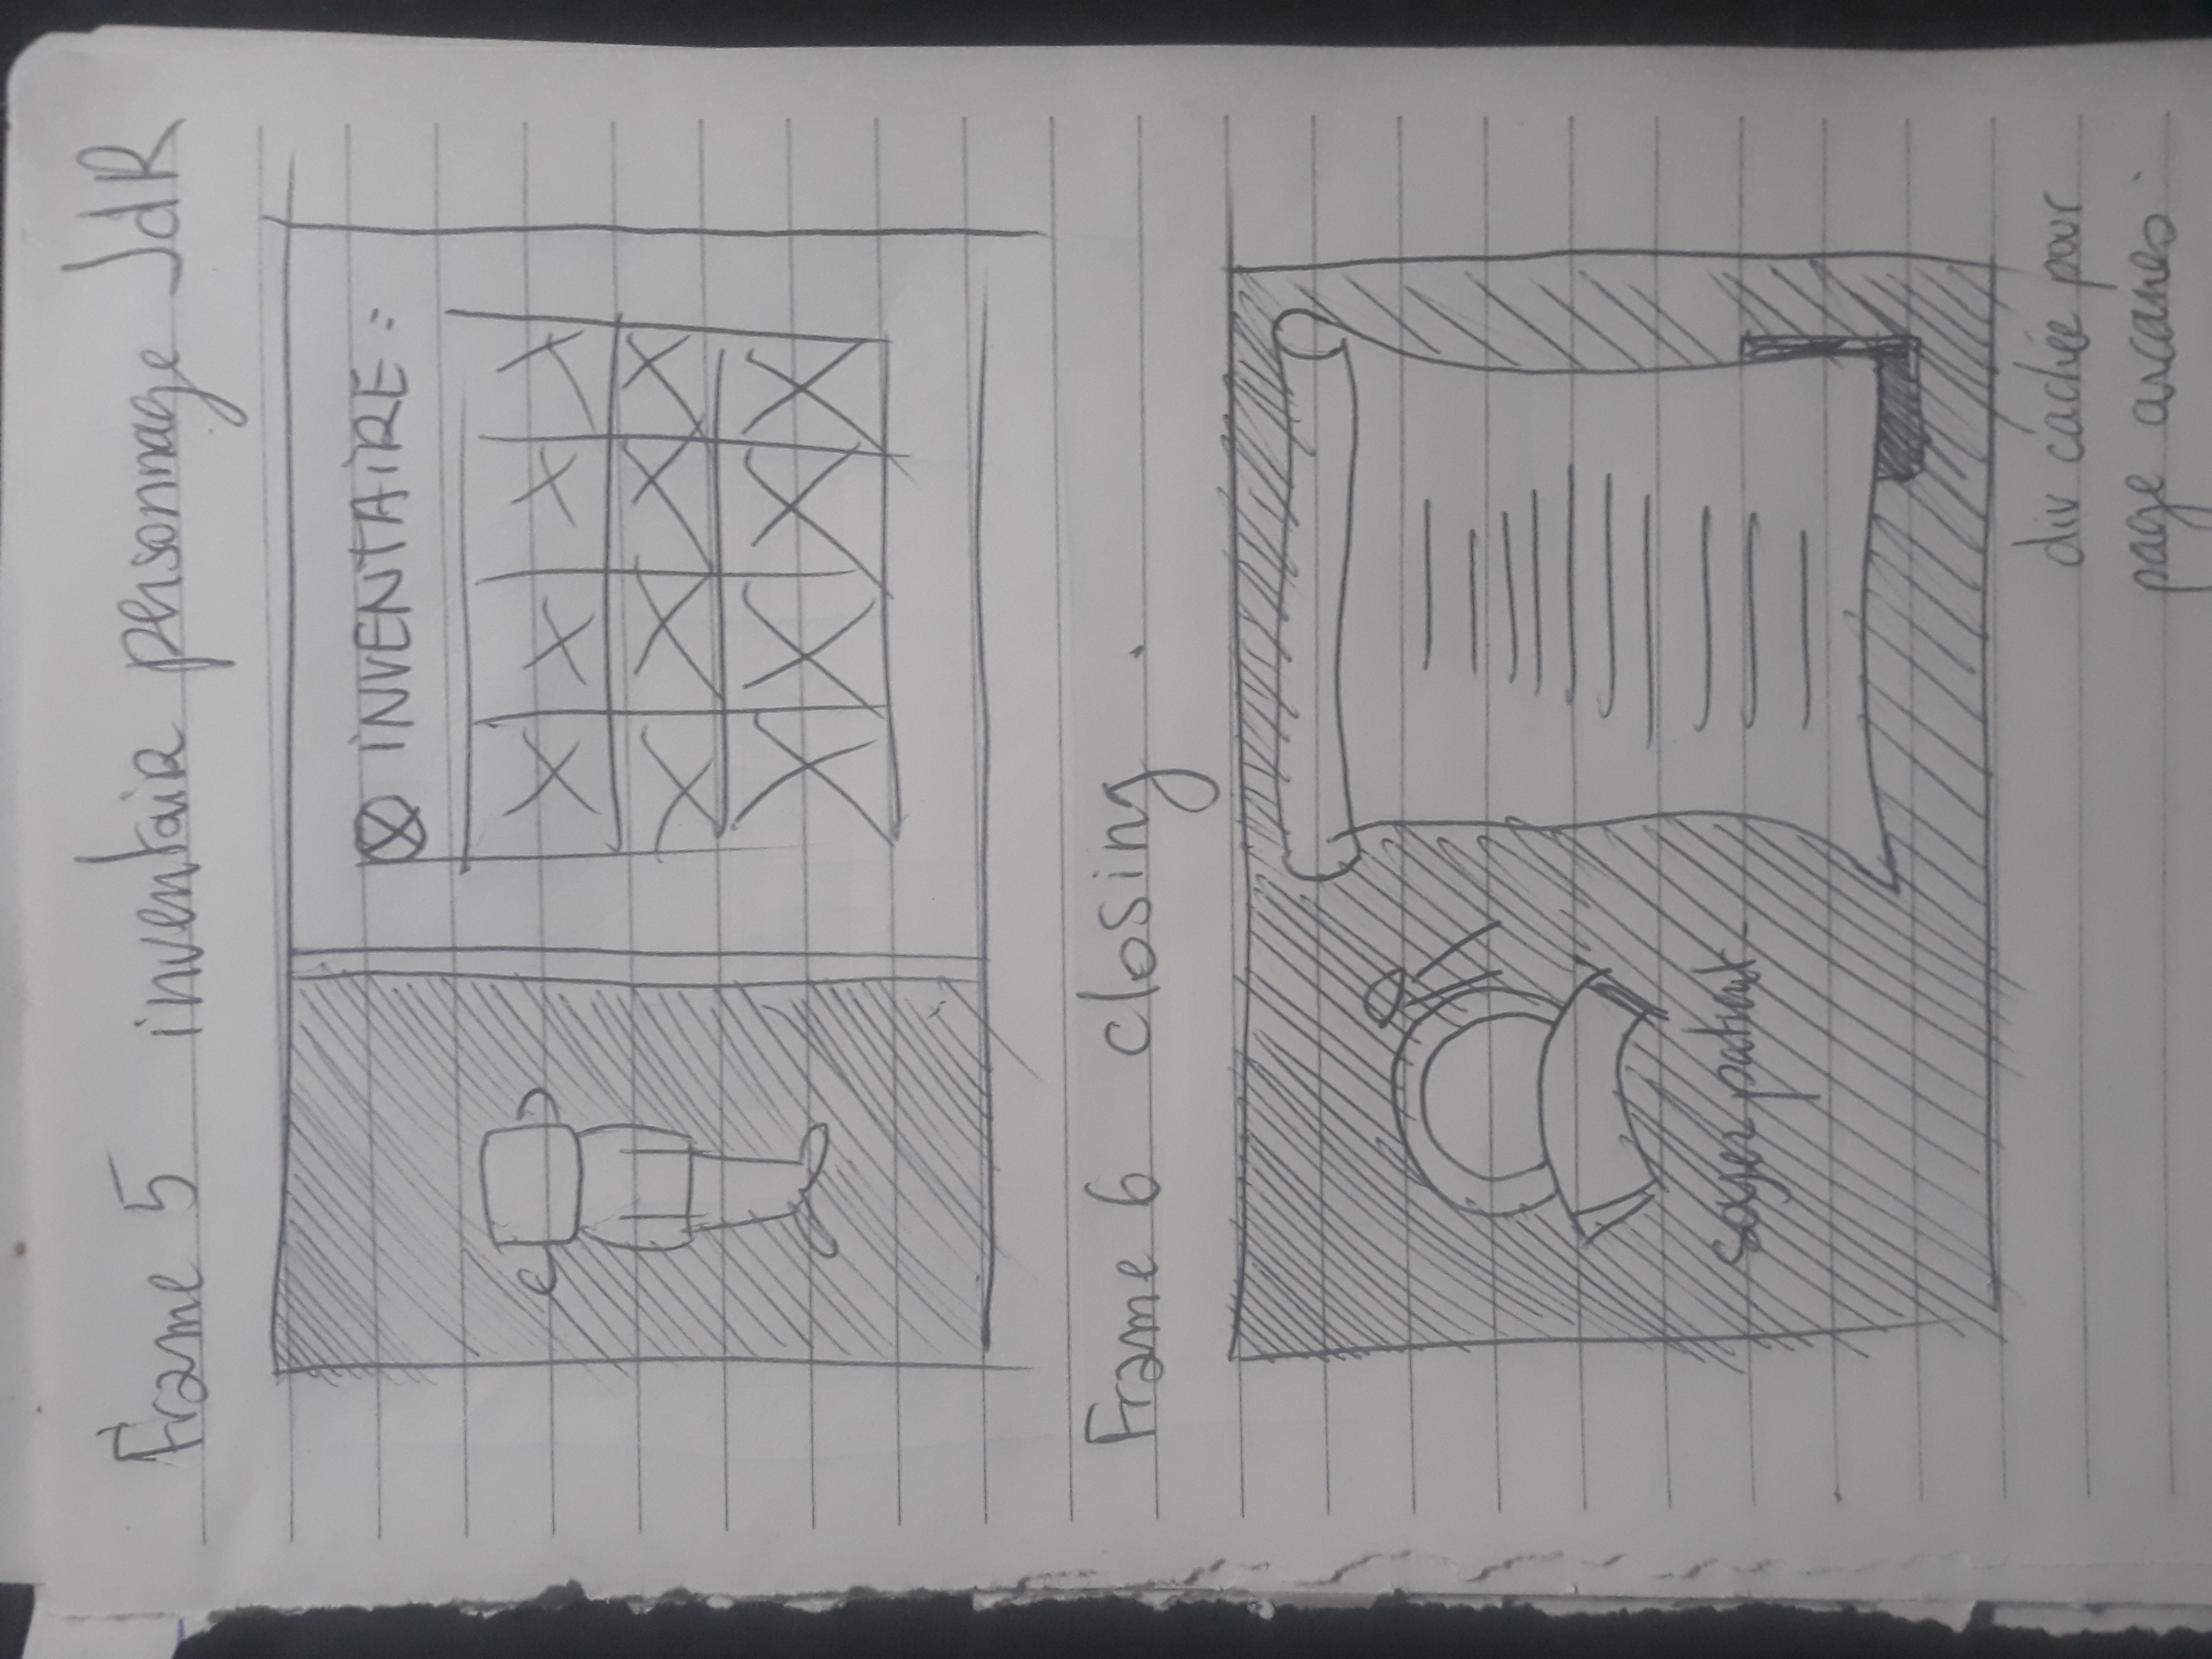 Frame 5 inventaire personnage JdR
INVENTAIRE :
Frame 6 closing .
soyez patient
div cachée pour
page arcanes